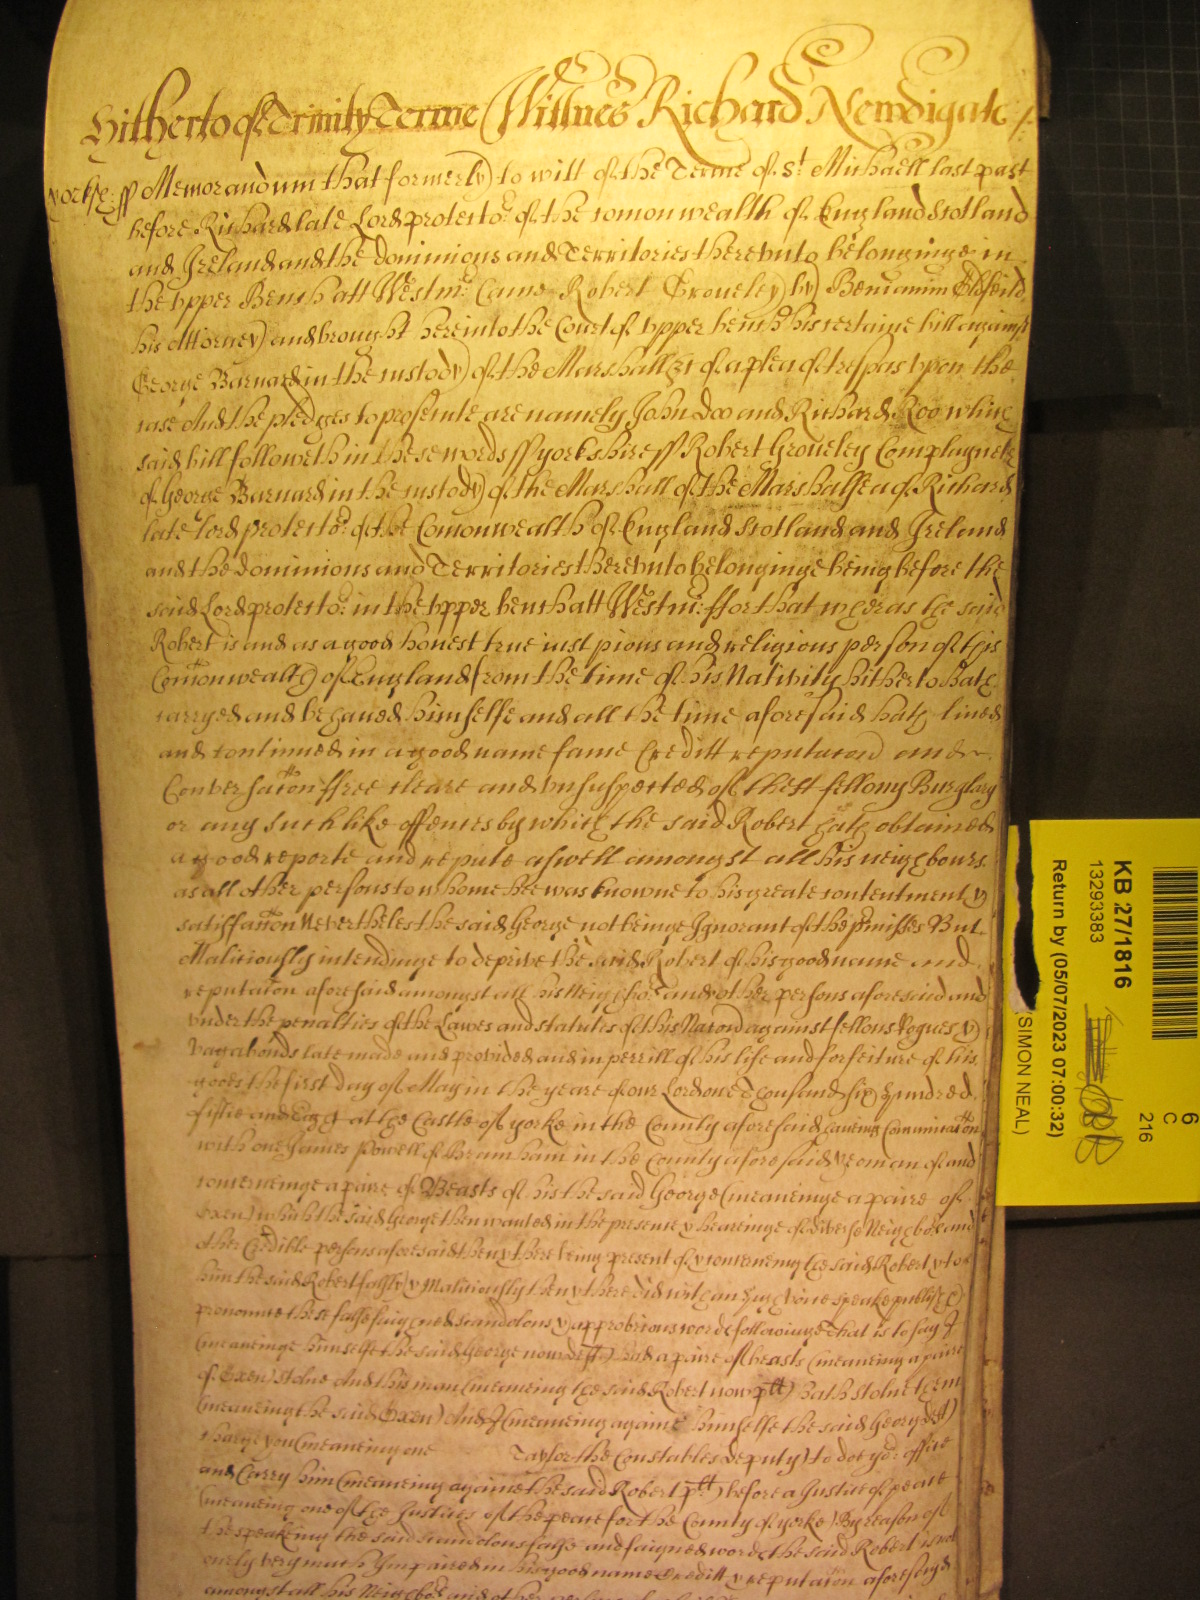 Hitherto of Trinity Terme Wittnes Richard Newdigate /.
Yorksh: ss Memorandum that formerly to witt of the Terme of St Michaell last past
before Richard late Lord protector of the comonwealth of England Scotland
and Ireland and the dominions and Territories therevnto belonginge in
the vpper Bench att Westmr: Came Robert Groueley by Beniamin
his Attorney and brought here into the Court of vpper bench his certaine bill against
George Barnard in the custody of the Marshall &c of a plea of trespas vpon the
case And the pledges to prosecute are namely John Doo and Richard Roo which
said bill followeth in these words ss yorkshire ss Robert Groueley Complayneth
of George Barnard in the custody of the Marshall of the Marshalsea of Richard
late Lord protector of the Comonwealth of England Scotland and Ireland
and the dominions and Territories therevnto belonginge being before the
said Lord protector: in the vpper bench att Westmr: ffor that wheras the said
Robert is and as a good honest true iust pious and religious person of this
Comonwealth of England from the time of his Nativity hitherto hath
carryed and behaued himselfe and all the time aforesaid hath liued
and continued in a good name fame Creditt reputacon and
Conversacon ffree cleare and vnsuspected of theft fellony Burglary
or any such like offences by which the said Robert hath obtained
a good reporte and repute aswell amongst all his neighbours
as all other persons to whome hee was knowne to his greate contentment &
satisfaccon Neverthelesthe said George not beinge Ignorant of the pmisses But
Maliciously intendinge to deprive the said Robert of his good name and
reputacon aforesaid amongst all his Neighbors and other persons aforesaid and
vnder the penalties of the Lawes and statutes of this Nacon against fellons Rogues &
vagabonds late made and provided and in perrill of his life and forfeiture of his
goods the first day of May in the yeare of our Lord one Thousand six hundred
fiftie and Eight at the Castle of yorke in the County aforesaid haueing Comunicacon
with one James Powell of Bramham in the County aforesaid yeoman of and
concerneinge a paire of Beasts of his the said George (meaneinge a paire of
Oxen) which the said George then wanted in the presence & heareinge of diverse Neighbors and
other Credible persons aforesaid then & there being present of & concerneing the said Robert & to
him the said Robert falsly & Maliciously then & there did with an high voice speake publish &
pronounce these false faigned scandolous & approbrious words followinge That is to say I
(meaneinge himselfe the said George now deft) had a paire of beasts (meaneing a paire
of Oxen) stolne And this man (meaneing the said Robert now ptt) hath stolne them
(meaneing the said Oxen) And I (meaneing againe himselfe the said George deft)
charge you (meaneing one Taylor the Constables deputy) to doe yor: office
and Carry him (meaneing againe the said Robert ptt) before a Justice of peace
(meaneing one of the Justices of the peace for the County of yorke) By reason of
the speakeing the said scandolous false and faigned words the said Robert is not
onely very much Impaired in his good name Creditt & reputacon aforesaid
amongst all his Neighbors and other
KB 27/1816
13293383
Return by (05/07/2023 07:00:32)
(SIMON NEAL)
6
C
216